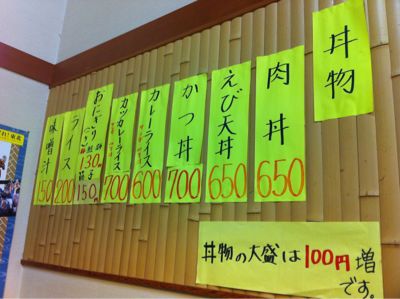 丼物
肉丼
650
えび天丼
650
かつ丼
700
カレーライス
600
カツカレーライス
700
おにぎり
130円
150円
ライス
200
味噌汁
150
丼物の大盛は100円増
です。